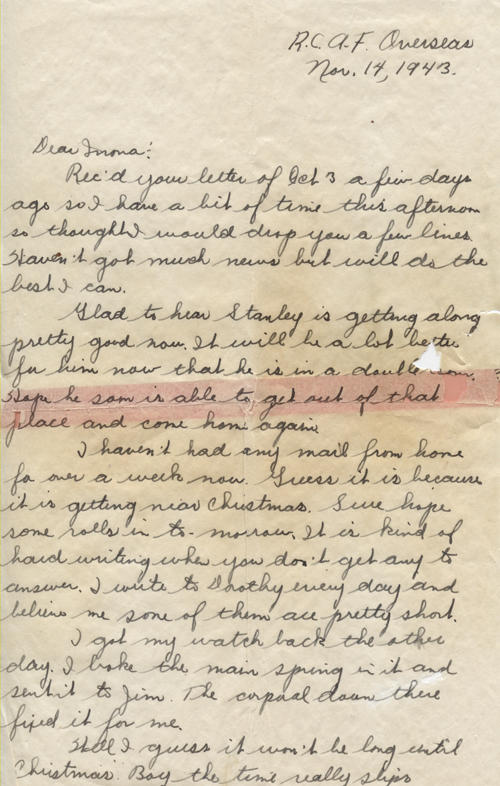 R.C.A.F. Overseas
Nov. 14, 1943.
Dear Inona:
Rec'd your letter of Oct 3 a few days
ago so I have a bit of time this afternoon
so thought I would drop you a few lines.
Haven't got much news but will do the
best I can.
Glad to hear Stanley is getting along
pretty good now. It will be a lot better
for him now that he is in a double room.
Hope he soon is able to get out of that
place and come home again.
I haven't had any mail from home
for over a week now. Guess it is because
it is getting near Christmas. Sure hope
some rolls in to-morrow. It is kind of
hard writing when you don't get any to
answer. I write to Dorothy every day and
believe me some of them are pretty short.
I got my watch back the other
day. I broke the main spring in it and
sent it to Jim. The corporal down there
fixed it for me.
Well I guess it won't be long until
Christmas. Boy the time really slips